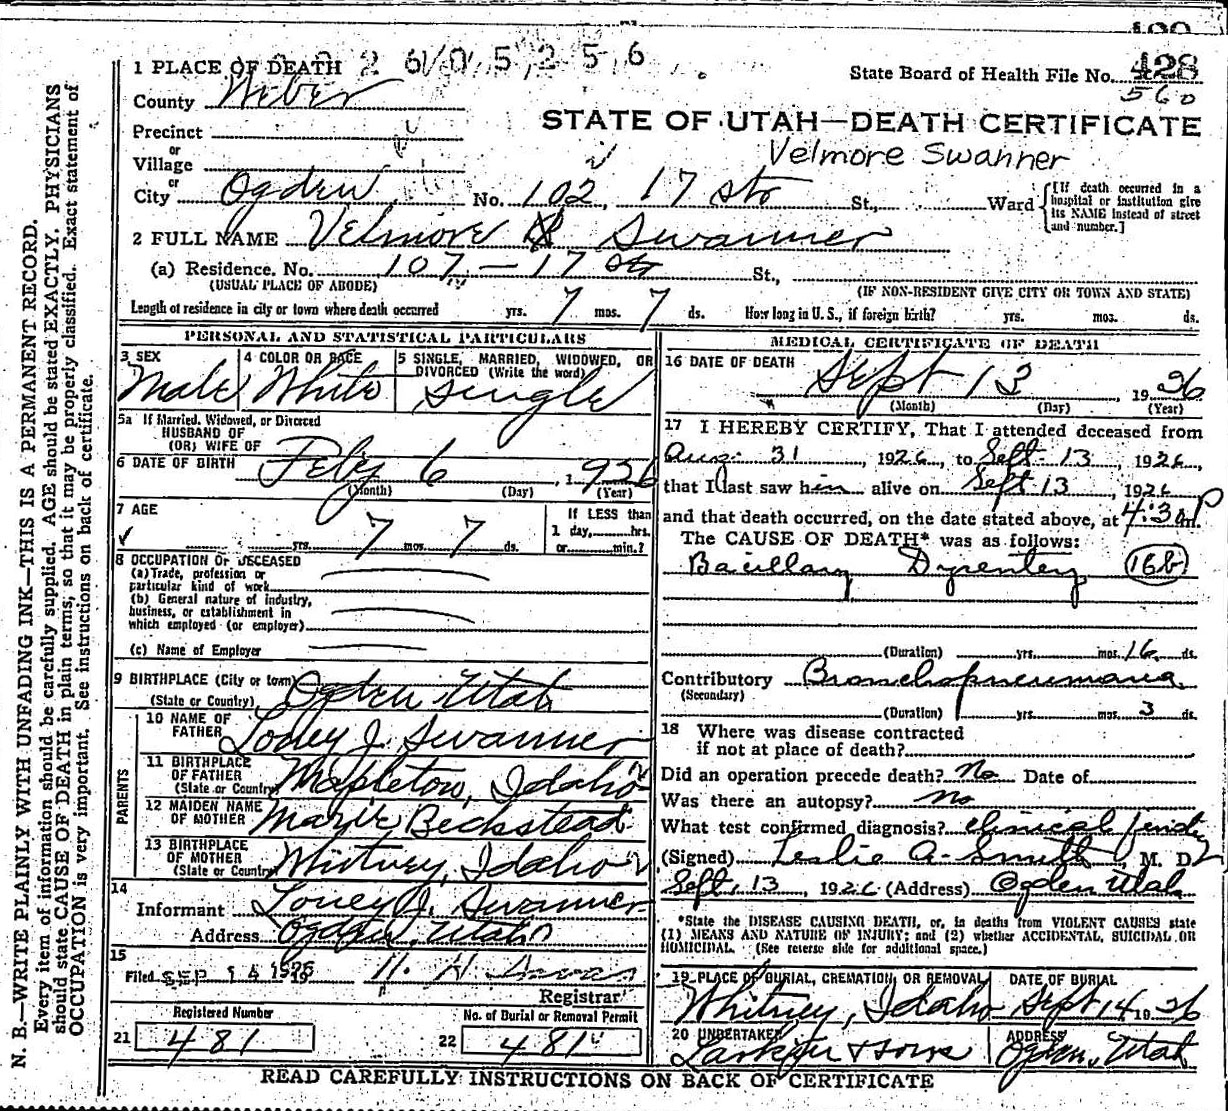 2 6 0 5 2 5 6
1 PLACE OF DEATH
State Board of Health File No. 428
560
County Weber
STATE OF UTAH—DEATH CERTIFICATE
Velmore Swanner
Precinct
or
Village
or
City Ogden No. 102, 17 St. St., Ward
[If death occurred in a hospital or institution give its NAME instead of street and number.]
2 FULL NAME Velmore Swanner
(a) Residence. No. 107 - 17 St St.,
(USUAL PLACE OF ABODE) (IF NON-RESIDENT GIVE CITY OR TOWN AND STATE)
Length of residence in city or town where death occurred yrs. 7 mos. 7 ds. How long in U. S., if foreign birth? yrs. mos. ds.
PERSONAL AND STATISTICAL PARTICULARS
3 SEX Male
4 COLOR OR RACE White
5 SINGLE, MARRIED, WIDOWED, OR DIVORCED (Write the word) Single
5a If Married, Widowed, or Divorced
HUSBAND OF
(OR) WIFE OF
6 DATE OF BIRTH Feby 6, 1926
(Month) (Day) (Year)
7 AGE yrs. 7 mos. 7 ds.
If LESS than
1 day, hrs.
or min.?
8 OCCUPATION OF DECEASED
(a) Trade, profession or
particular kind of work
(b) General nature of industry,
business, or establishment in
which employed (or employer)
(c) Name of Employer
9 BIRTHPLACE (City or town) Ogden Utah
(State or Country)
PARENTS
10 NAME OF FATHER Loney J. Swanner
11 BIRTHPLACE OF FATHER Mapleton, Idaho
(State or Country)
12 MAIDEN NAME OF MOTHER Beckstead
13 BIRTHPLACE OF MOTHER Whitney, Idaho
(State or Country)
14
Informant Loney J. Swanner
Address Ogden, Utah
15
Filed SEP 14 1926
Registrar
Registered Number
21 481
No. of Burial or Removal Permit
22 481
MEDICAL CERTIFICATE OF DEATH
16 DATE OF DEATH Sept 13, 1926
(Month) (Day) (Year)
17 I HEREBY CERTIFY, That I attended deceased from
Aug. 31, 1926, to Sept. 13, 1926,
that I last saw him alive on Sept 13, 1926
and that death occurred, on the date stated above, at 4:30 P m.
The CAUSE OF DEATH* was as follows:
Bacillary Dysentery (16b)
(Duration) yrs. mos. 16 ds.
Contributory Bronchopneumonia
(Secondary)
(Duration) yrs. mos. 3 ds.
18 Where was disease contracted
if not at place of death?
Did an operation precede death? No Date of
Was there an autopsy? no
What test confirmed diagnosis? clinical
(Signed) Leslie A. Smith, M. D.
Sept. 13, 1926 (Address) Ogden Utah
*State the DISEASE CAUSING DEATH, or, in deaths from VIOLENT CAUSES state
(1) MEANS AND NATURE OF INJURY; and (2) whether ACCIDENTAL, SUICIDAL OR
HOMICIDAL. (See reverse side for additional space.)
19 PLACE OF BURIAL, CREMATION, OR REMOVAL DATE OF BURIAL
Whitney, Idaho Sept 14 1926
20 UNDERTAKER ADDRESS
Larkin & Sons Ogden, Utah
READ CAREFULLY INSTRUCTIONS ON BACK OF CERTIFICATE
N. B.—WRITE PLAINLY WITH UNFADING INK—THIS IS A PERMANENT RECORD.
Every item of information should be carefully supplied. AGE should be stated EXACTLY. PHYSICIANS
should state CAUSE OF DEATH in plain terms, so that it may be properly classified. Exact statement of
OCCUPATION is very important. See instructions on back of certificate.